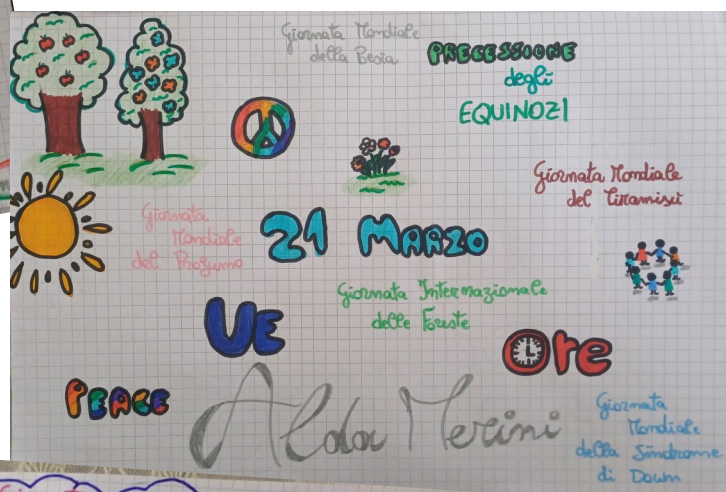 Giornata Mondiale
della Poesia
PRECESSIONE
degli
EQUINOZI
Giornata Mondiale
del Tiramisù
Giornata
Mondiale
del Profumo
21 MARZO
Giornata Internazionale
delle Foreste
UE
Ore
PEACE
Alda Merini
Giornata
Mondiale
della Sindrome
di Down